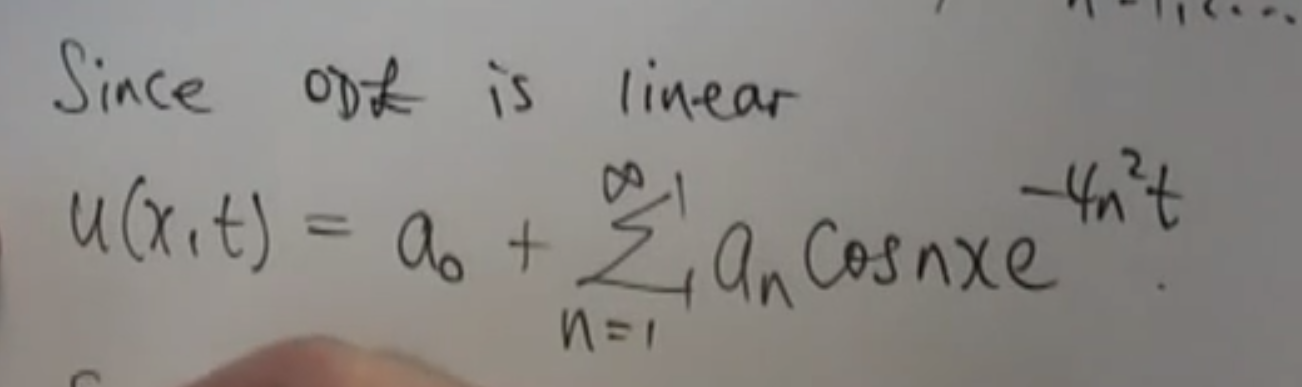 Since ODE is linear
u(x,t) = a₀ + ∑_{n=1}^{∞} aₙ cos nx e^{-4n²t}.